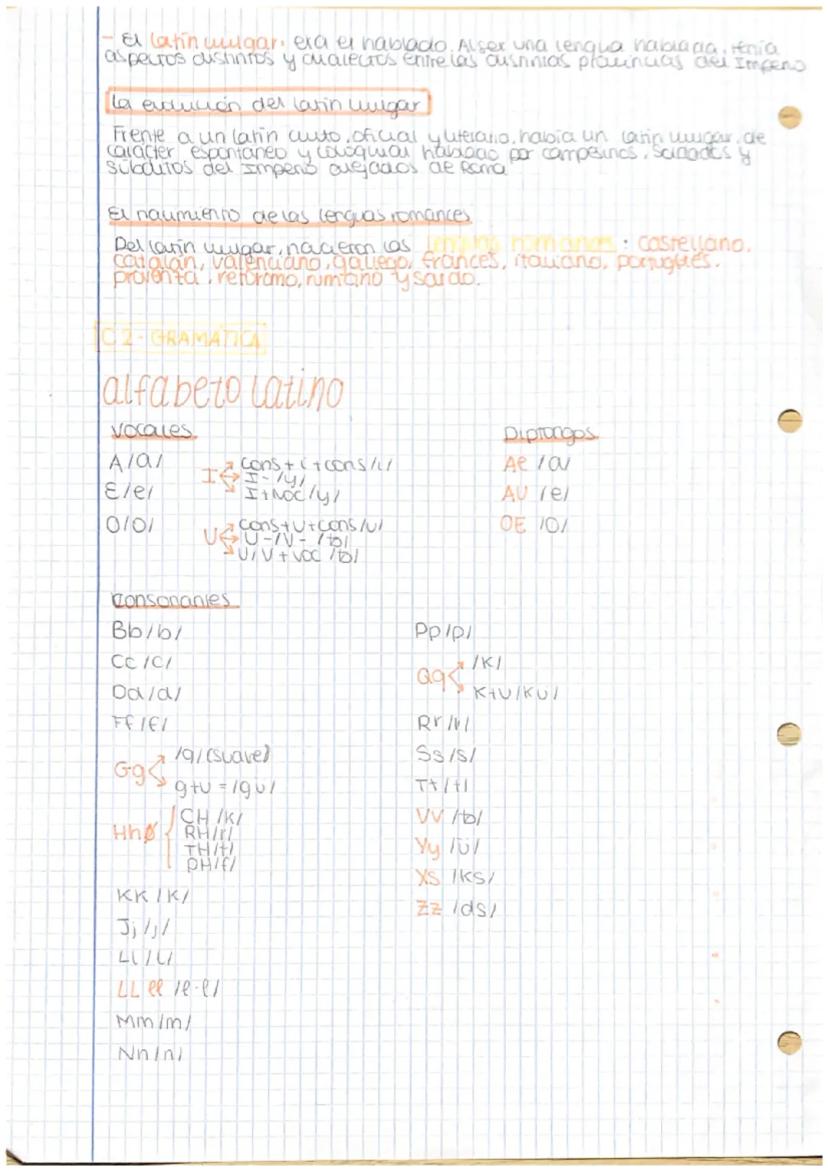 - El latín vulgar: era el hablado. Al ser una lengua hablada, tenía
aspectos distintos y dialectos entre las distintas provincias del Imperio
La evolución del latín vulgar
Frente a un latín culto, oficial y literario, había un latín vulgar, de
carácter espontáneo y coloquial hablado por campesinos, soldados y
súbditos del Imperio alejados de Roma
El nacimiento de las lenguas romances
Del latín vulgar, nacieron las lenguas romances: castellano,
catalán, valenciano, gallego, francés, italiano, portugués,
provenza, retorromo, rumano y sardo.
C2 - GRAMÁTICA
alfabeto latino
vocales
Diptongos
A/a/
I cons + i + cons /i/
I - /y/
I + voc /y/
AE /a/
E/e/
AU /e/
O/o/
U cons + U + cons /u/
U - / V - /b/
U/V + voc /b/
OE /o/
consonantes
Bb/b/
Pp/p/
Cc/c/
Qq /k/
K+U/KU/
Dd/d/
Ff/f/
Rr/r/
Gg /g/ (suave)
g+u = /gu/
Ss/s/
Tt/t/
Hh Ø CH /k/
RH/r/
TH/t/
PH/f/
VV /b/
Yy /ü/
KK /K/
Xs /ks/
Zz /ds/
Jj/j/
Ll/l/
LL ll /l-l/
Mm/m/
Nn/n/